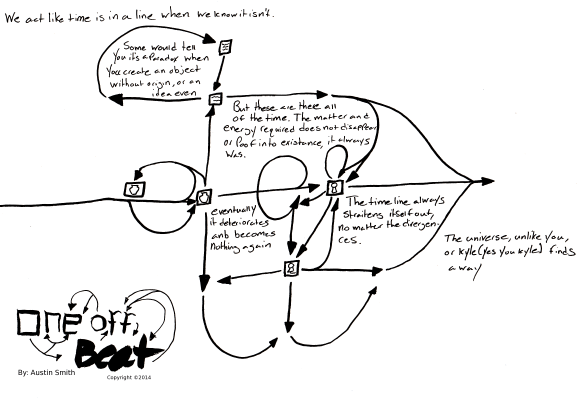 We act like time is in a line when we know it isn't.
Some would tell
you it's a Paradox when
you create an object
without origin, or an
idea even
But these are there all
of the time. The matter and
energy required does not disappear
or Poof into existence, it always
was.
eventually
it deteriorates
anb becomes
nothing again
The time line always
straitens itself out,
no matter the divergen-
ces.
The universe, unlike you,
or kyle (yes you kyle) finds
a way
One off
Beat
By: Austin Smith
Copyright ©2014